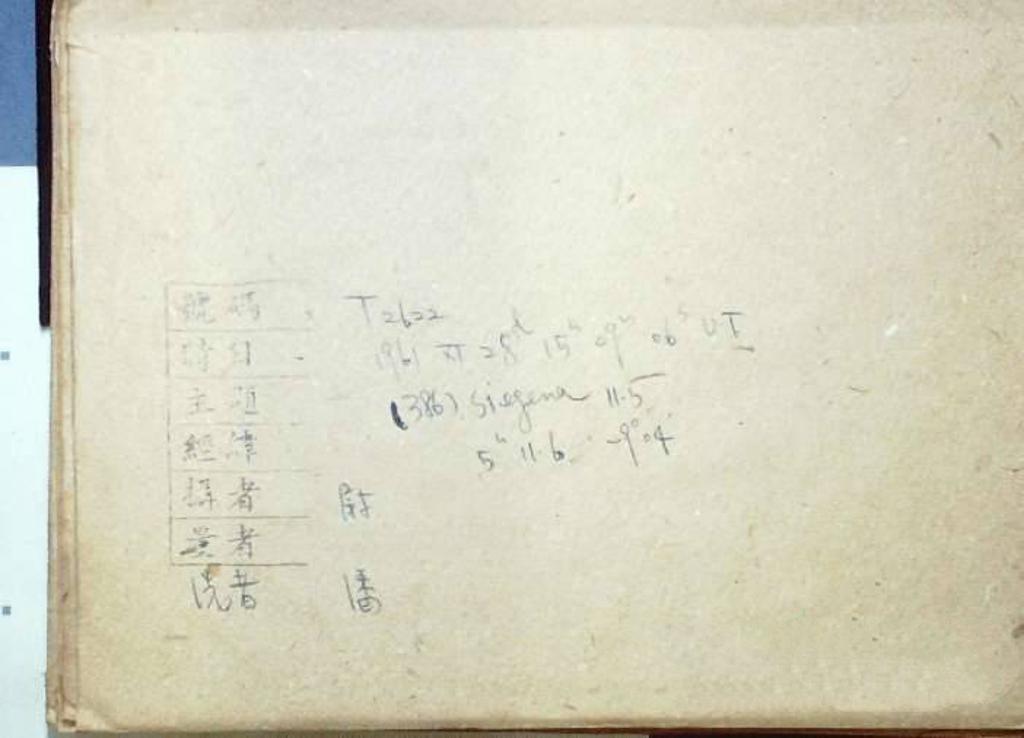 號碼 T2622
時刻 1961 XI 28ᵈ 15ʰ 09ᵐ 06ˢ UT
主題 (386) Siegena 11.5
經緯 5ʰ 11.6 -9°04
攝者 尉
量者
洗者 潘